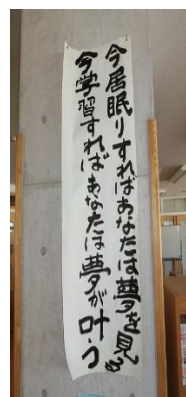 今居眠りすればあなたは夢を見る
今学習すればあなたは夢が叶う